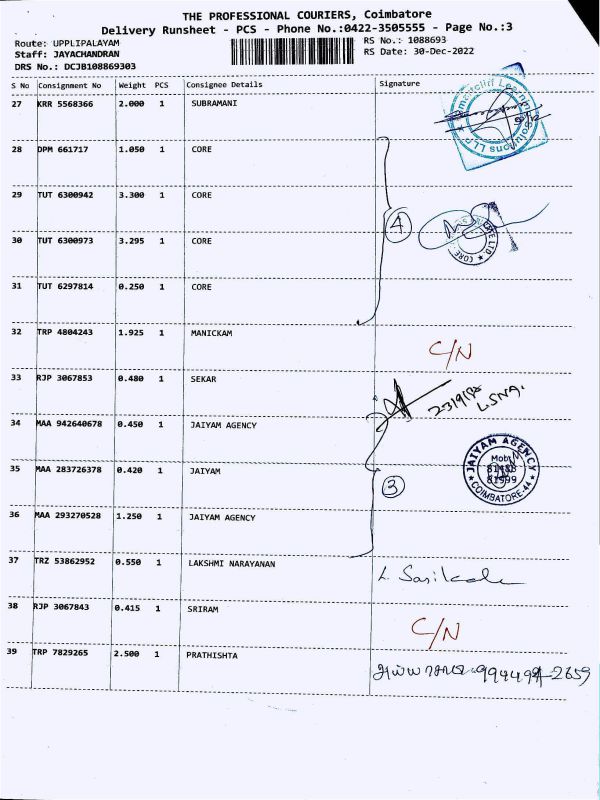 THE PROFESSIONAL COURIERS, Coimbatore
Delivery Runsheet - PCS - Phone No.:0422-3505555 - Page No.:3
Route: UPPLIPALAYAM RS No.: 1088693
Staff: JAYACHANDRAN RS Date: 30-Dec-2022
DRS No.: DCJB108869303
S No Consignment No Weight PCS Consignee Details Signature
27 KRR 5568366 2.000 1 SUBRAMANI
28 DPM 661717 1.050 1 CORE
29 TUT 6300942 3.300 1 CORE
4
30 TUT 6300973 3.295 1 CORE
CORE
31 TUT 6297814 0.250 1 CORE
32 TRP 4804243 1.925 1 MANICKAM C/N
33 RJP 3067853 0.480 1 SEKAR
34 MAA 942640678 0.450 1 JAIYAM AGENCY
35 MAA 283726378 0.420 1 JAIYAM
3
JAIYAM AGENCY
COIMBATORE-44
36 MAA 293270528 1.250 1 JAIYAM AGENCY
37 TRZ 53862952 0.550 1 LAKSHMI NARAYANAN
38 RJP 3067843 0.415 1 SRIRAM C/N
39 TRP 7829265 2.500 1 PRATHISHTA